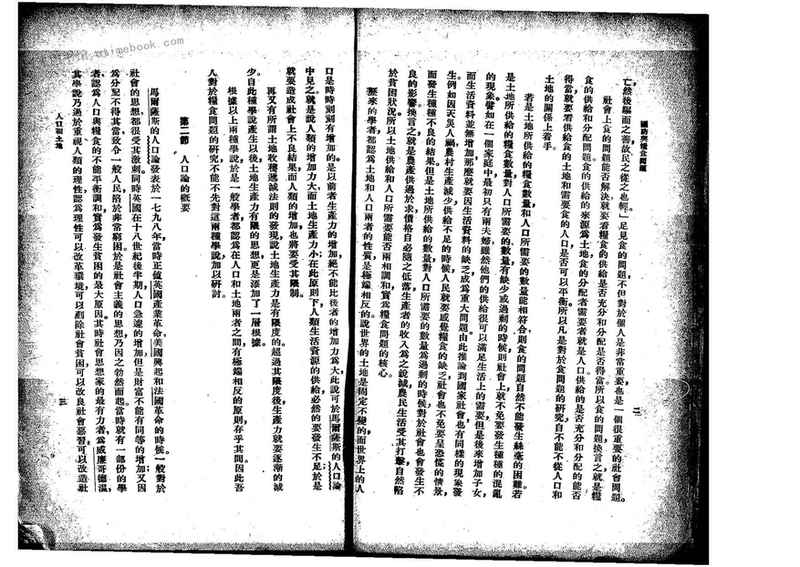 國防與糧食問題
二
亡然後驅而之善故民之從之也輕」足見食的問題不但對於個人是非常重要也是一個很重要的社會問題。
社會上食的問題能否解決就要看糧食的供給是否充分和分配是否得當所以食的問題換言之就是糧
食的供給和分配問題食的供給的來源為土地食的分配者需要者就是人口供給的是否充分和分配的能否
得當就要看供給食的土地和需要食的人口是否可以平衡所以凡是對於食問題的研究自不能不從人口和
土地的關係上着手。
若是土地所供給的糧食數量和人口所需要的數量能相符合則食的問題自然不能發生絲毫的困難若
是土地所供給的糧食數量對人口所需要的數量有缺少或過剩的時候則社會上就不免要發生種種的混亂
的現象譬如在一個家庭中最初只有兩夫婦雖然他們的供給很可以滿足生活上的需要但是後來增加子女
而生活資料並無增加那麼就要因生活資料的缺乏成為重大問題由此推論到國家社會也有同樣的現象發
生例如因天災人禍農村生產減少供給不足的時候人民就要感覺糧食的缺乏社會也不免要呈恐慌的情景,
而發生種種不良的結果但是土地所供給的數量對人口所需要的數量為過剩的時候對於社會也會發生不
良的影響換言之就是農產供過於求價格自必隨之低落生產者的收入為之銳減農民生活受其打擊自然陷
於貧困狀況所以土地供給和人口所需要能否兩相調和實為糧食問題的核心。
歷來的學者都認為土地和人口兩者的性質是極端相反的說世界的土地是固定不變的而世界上的人
口是時時刻刻有增加的是以前者生產力的增加絕不能比後者的增加力為大此說可於馬爾薩斯的人口論
中見之就是說人類的增加力大而土地生產力小在此原則下人類生活資源的供給必然的要發生不足於是
就要造成社會上不良結果而人類的增加也將要受其限制。
再又有所謂土地收穫遞減法則的發現說土地生產力是有限度的超過其限度後生產力就要逐漸的減
少自此種學說產生以後土地生產力有限的思想更是添加了一層根據。
根據以上兩種學說於是一般學者都認為在人口和土地兩者之間有極端相反的原則存乎其間因此吾
人對於糧食問題的研究不能不先對這兩種學說加以研討。
第二節 人口論的概要
馬爾薩斯的人口論發表於一七九八年當時正值英國產業革命美國興起和法國革命的時候一般對於
社會的思想都很受其激刺同時英國在十八世紀後半期人口急遽的增加但是財富不能有同等的增加又因
為分配不得其當致令一般人民陷於非常窮困於是社會主義的思想乃因之勃然而起當時就有一部份的學
者認為人口與糧食的不能平衡調和實為發生貧困的最大原因其時社會思想家的最有力者為威廉哥德溫
其學說乃過於重視人類的理性認為理性可以改革環境可以剷除社會貧困可以改良社會惡習可以改造社
人口和土地
三